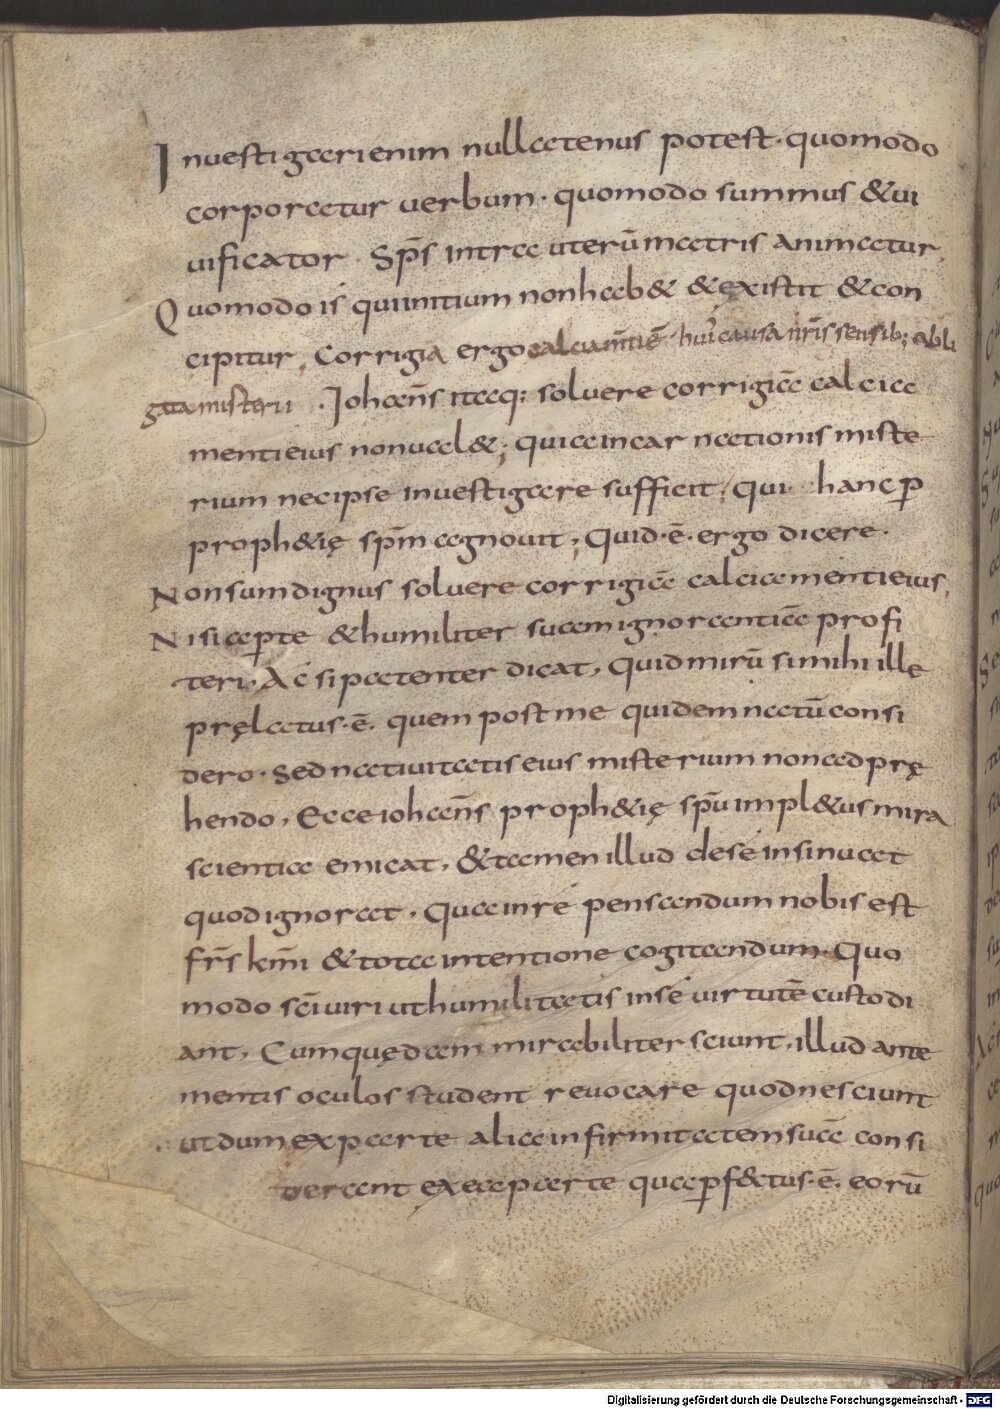 Inuestigari enim nullatenus potest· quomodo
corporatur uerbum· quomodo summus &ui
uificator· Sp̄s intra uterū matris animatur,
Quomodo is qui initium non hab& &existit &con
cipitur, Corrigia ergo nr̄is sensib;
misterii ·Johann̄s itaq; soluere corrigiā calcia
menti eius non ual&; quia incarnationis miste
rium nec ipse inuestigare sufficit, qui hanc ꝑ
proph&ię sp̄m agnouit, Quid·ē·ergo dicere·
Non sum dignus soluere corrigiā calciamenti eius,
Nisi aperte &humiliter suam ignorantiā profi
teri· Ac si patenter dicat, Quid mirū si mihi ille
pręlatus·ē· quem post me quidem natū consi
dero· Sed natiuitatis eius misterium non adprę
hendo, Ecce iohann̄s proph&ię sp̄u impl&us mira
scientia emicat, &tamen illud de se insinuat
quod ignorat, Qua in re pensandum nobis est
fr̄s km̄i &tota intentione cogitandum· Quo
modo sc̄i uiri ut humilitatis in se uirtutē custodi
ant, Cum quędam mirabiliter sciunt, illud ante
mentis oculos student reuocare quod nesciunt
ut dum ex parte alia infirmitatem suā consi
derant ex ea parte qua ꝑf&ctus·ē· eorū
Digitalisierung gefördert durch die Deutsche Forschungsgemeinschaft - DFG